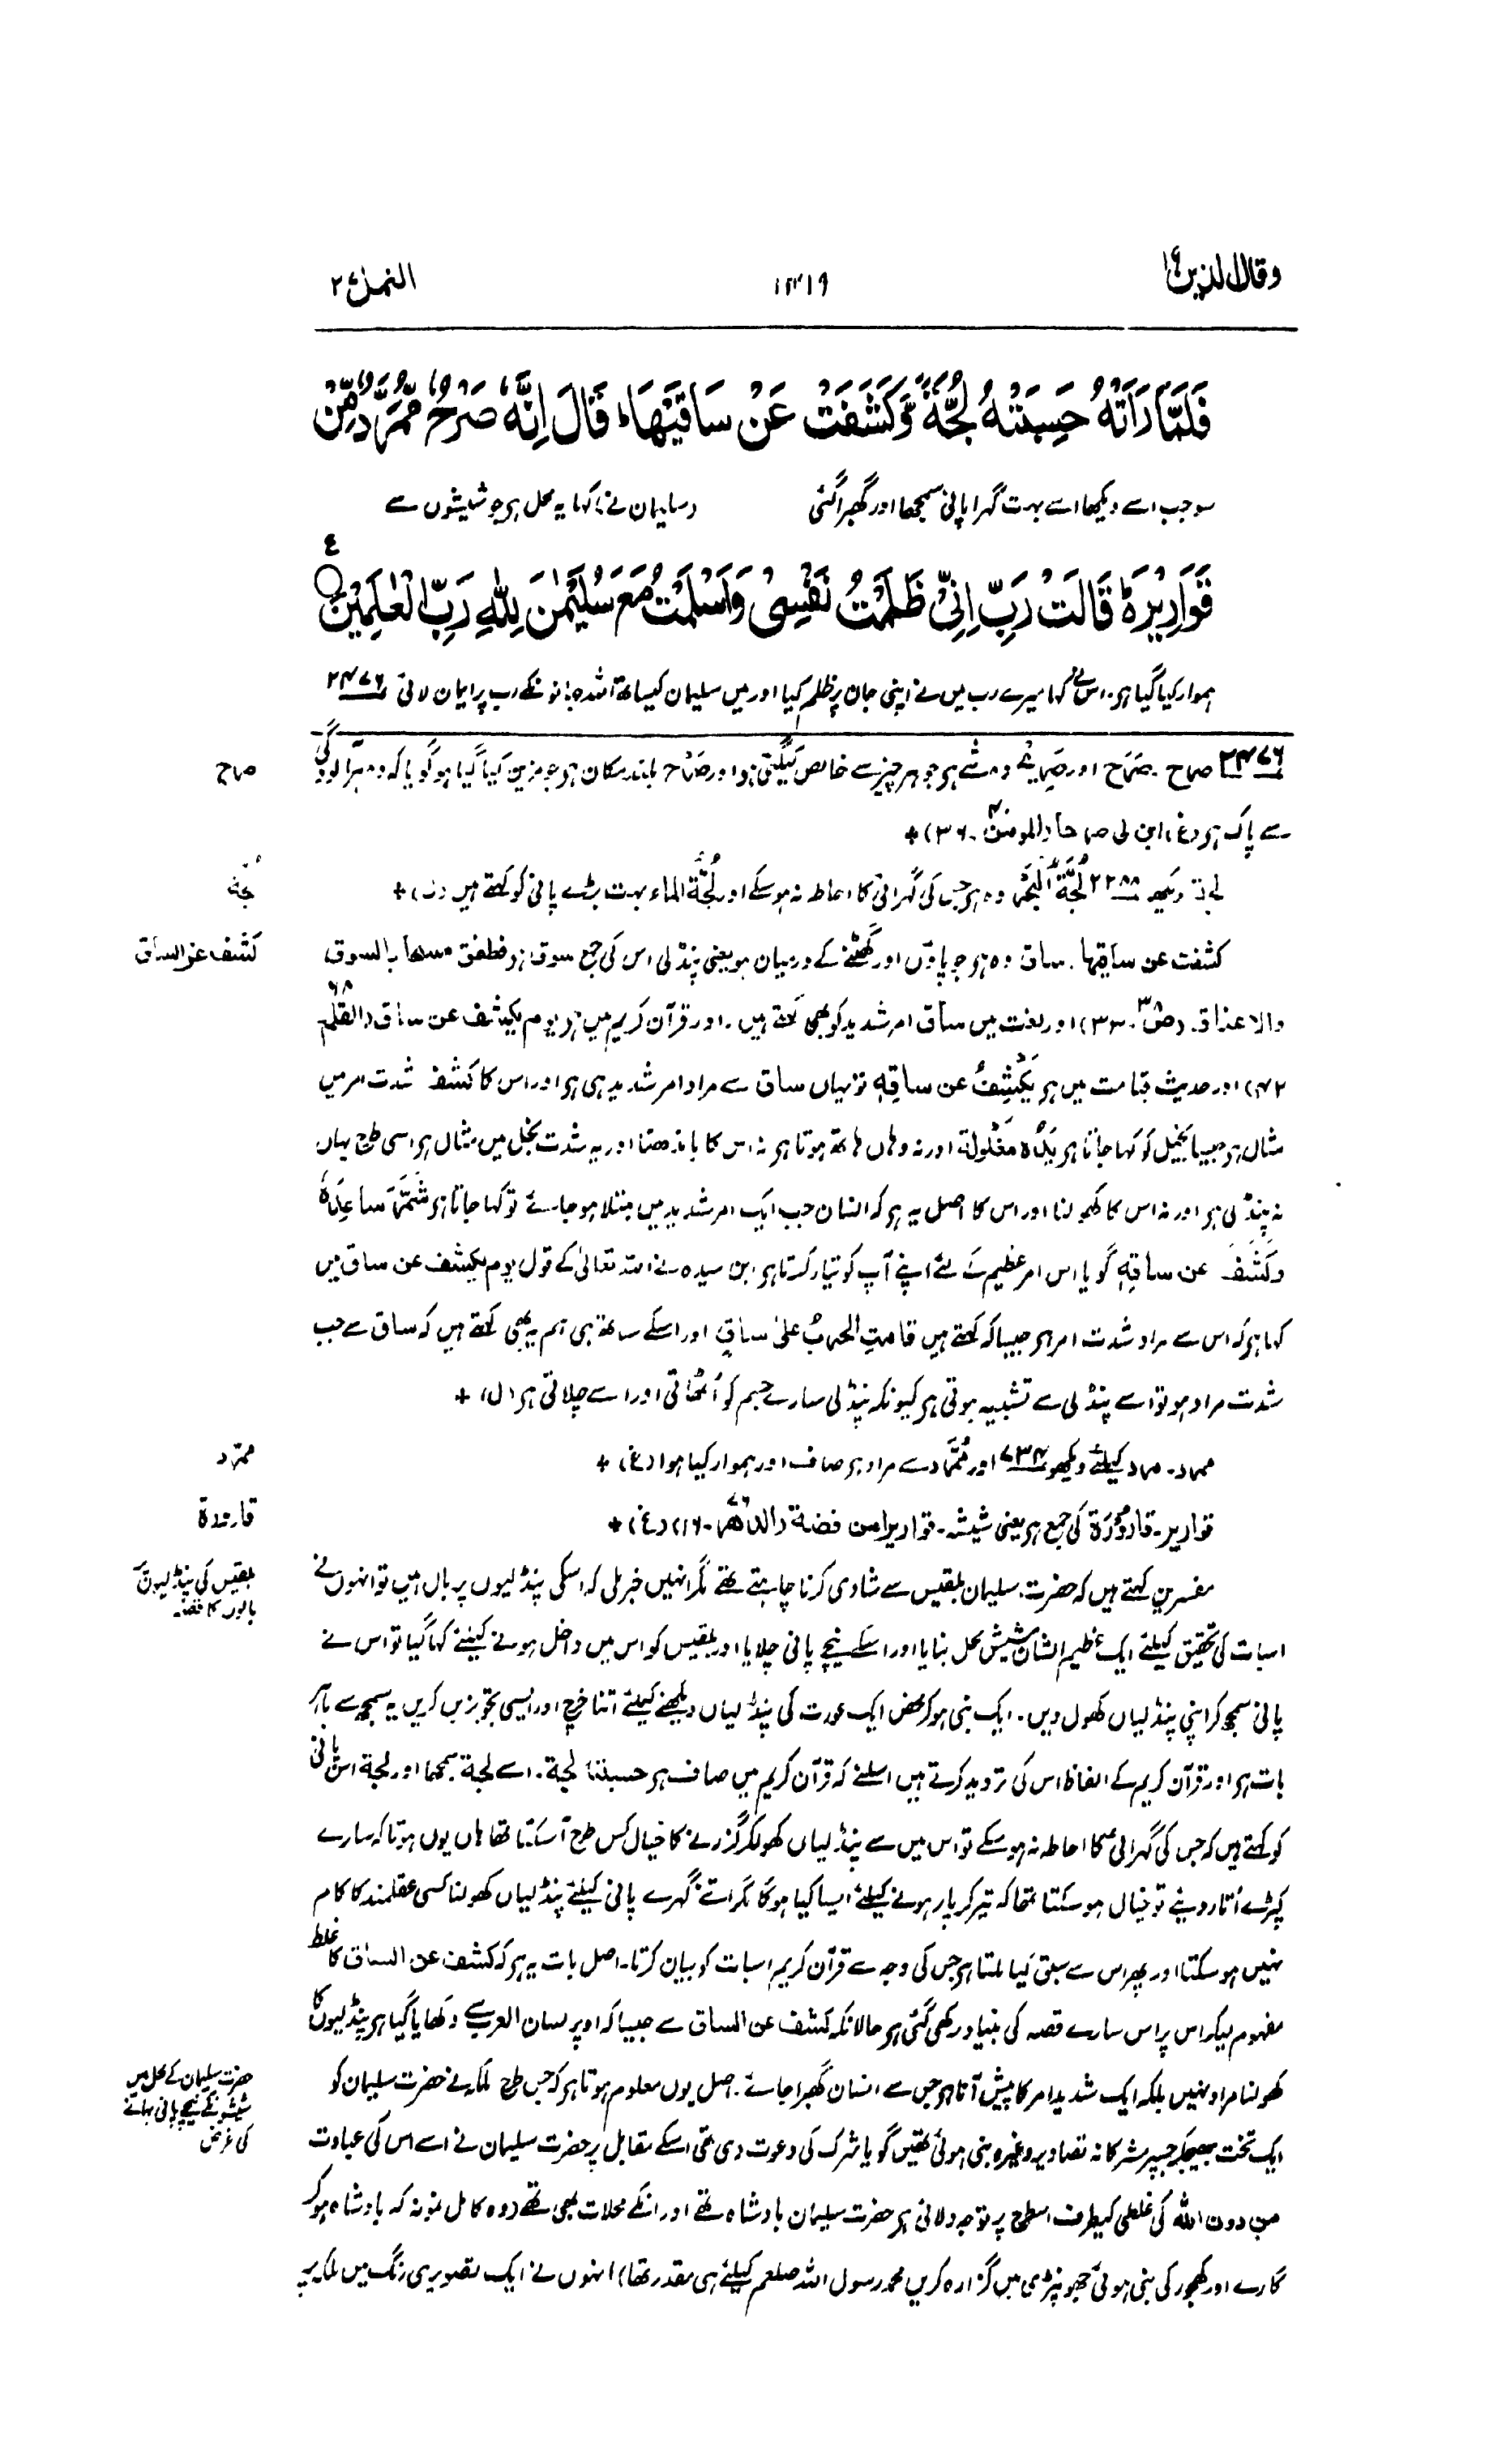 وقال الذین ۱۹
۱۳۱۹
النمل ۲۷
فَلَمَّا رَاَتْهُ حَسِبَتْهُ لُجَّةً وَّكَشَفَتْ عَنْ سَاقَيْهَا ؕ قَالَ اِنَّهٗ صَرْحٌ مُّمَرَّدٌ مِّنْ
سو جب اسے دیکھا اسے بہت گہرا پانی سمجھا اور گھبرا گئی (سلیمان نے) کہا یہ محل ہے جو شیشوں سے
ع
قَوَارِيْرَ ؕ قَالَتْ رَبِّ اِنِّيْ ظَلَمْتُ نَفْسِيْ وَاَسْلَمْتُ مَعَ سُلَيْمٰنَ لِلّٰهِ رَبِّ الْعٰلَمِيْنَ
ہموار کیا گیا ہے۔ اس نے کہا میرے رب میں نے اپنی جان پر ظلم کیا اور میں سلیمان کیساتھ اللہ جہانونکے رب پر ایمان لائی ۲۴۷۶
صرح
۲۴۷۶ صرح۔ صَرَح اور صریح وہ شے ہے جو ہر چیز سے خالص نکلتی ہو اور صَرْح بلند مکان ہے جو مزین کیا گیا ہو گویا کہ وہ ہر آلودگی
سے پاک ہے (غ) ابن لی صرحا (المومن ۴۰۔ ۳۶) +
لجة
لجة دیکھو ۲۲۸۸ لُجَّة الْبَحْر وہ ہے جس کی گہرائی کا احاطہ نہ ہو سکے اور لُجَّة الماء بہت بڑے پانی کو کہتے ہیں (ل) +
کشف عن الساق
کشفت عن ساقیھا۔ ساق وہ ہے جو پاؤں اور گھٹنے کے درمیان ہو یعنی پنڈلی اس کی جمع سوق ہے فطفق مسحا بالسوق
والاعناق۔ (صٓ ۳۸۔ ۳۳) اور لغت میں ساق امر شدید کو بھی کہتے ہیں۔ اور قرآن کریم میں ہے یوم یکشف عن ساق (القلم ۶۸
۴۲) اور حدیث قیامت میں ہے یَکْشِفُ عن ساقِهٖ تو یہاں ساق سے مراد امر شدید ہی ہے اور اس کا کشف شدت امر میں
مثال ہے جیسا بخیل کو کہا جاتا ہے یَدُہ مَغْلُولة اور نہ وہاں ہاتھ ہوتا ہے نہ اس کا باندھنا اور یہ شدت بخل میں مثال ہے اسی طرح یہاں
نہ پنڈلی ہے اور نہ اس کا کھولنا اور اس کا اصل یہ ہے کہ انسان جب ایک امر شدید میں مبتلا ہو جائے تو کہا جاتا ہے شَمَّرَ ساعِدَہٗ
وکَشَفَ عن ساقِهٖ گویا اس امر عظیم کے لئے اپنے آپ کو تیار کرتا ہے ابن سیدہ نے اللہ تعالیٰ کے قول یوم یکشف عن ساق میں
کہا ہے کہ اس سے مراد شدت امر ہے جیسا کہ کہتے ہیں قامتِ الحربُ علیٰ ساقٍ اور اسکے ساتھ ہی ہم یہ بھی کہتے ہیں کہ ساق سے جب
شدت مراد ہو تو اسے پنڈلی سے تشبیہ ہوتی ہے کیونکہ پنڈلی سارے جسم کو اُٹھاتی اور اسے چلاتی ہے (ل) +
ممرّد
ممرد۔ مرد کیلئے دیکھو ۷۳۴ اور مُمَرَّد سے مراد ہے صاف اور ہموار کیا ہوا (غ) +
قارورة
قواریر۔ قارُوْرَة کی جمع ہے یعنی شیشہ۔ قواریرا من فضة (الدھر ۷۶۔ ۱۶) (غ) +
بلقیس کی پنڈلیوں پر
بالوں کا قصہ
مفسرین کہتے ہیں کہ حضرت سلیمان بلقیس سے شادی کرنا چاہتے تھے مگر انہیں خبر ملی کہ اسکی پنڈلیوں پر بال ہیں تو انہوں نے
اسبات کی تحقیق کیلئے ایک عظیم الشان شیش محل بنایا اور اسکے نیچے پانی چلایا اور بلقیس کو اس میں داخل ہونے کیلئے کہا گیا تو اس نے
پانی سمجھ کر اپنی پنڈلیاں کھول دیں۔ ایک نبی ہو کر محض ایک عورت کی پنڈلیاں دیکھنے کیلئے اتنا خرچ اور ایسی تجویزیں کریں یہ سمجھ سے باہر
بات ہے اور قرآن کریم کے الفاظ اس کی تردید کرتے ہیں اسلئے کہ قرآن کریم میں صاف ہے حسبتہ لجة۔ اسے لجة سمجھا اور لجة اس پانی
کو کہتے ہیں کہ جس کی گہرائی کا احاطہ نہ ہو سکے تو اس میں سے پنڈلیاں کھولکر گزرنے کا خیال کس طرح آسکتا تھا ہاں یوں ہوتا کہ سارے
کپڑے اُتار دیئے تو خیال ہو سکتا تھا کہ تیر کر پار ہونے کیلئے ایسا کیا ہوگا مگر اتنے گہرے پانی کیلئے پنڈلیاں کھولنا کسی عقلمند کا کام
نہیں ہو سکتا اور پھر اس سے سبق کیا ملتا ہے جس کی وجہ سے قرآن کریم اسبات کو بیان کرتا۔ اصل بات یہ ہے کہ کشف عن الساق کا غلط
مفہوم لیکر اس پر اس سارے قصہ کی بنیاد رکھی گئی ہے حالانکہ کشف عن الساق سے جیسا کہ اوپر لسان العرب سے دکھایا گیا ہے پنڈلیوں کا
حضرت سلیمان کے محل میں
شیشونکے نیچے پانی بہانے
کی غرض
کھولنا مراد نہیں بلکہ ایک شدید امر کا پیش آنا ہے جس سے انسان گھبرا جائے۔ اصل یوں معلوم ہوتا ہے کہ جس طرح ملکہ نے حضرت سلیمان کو
ایک تخت بھیجکر جسپر مشرکانہ تصاویر وغیرہ بنی ہوئی تھیں گویا شرک کی دعوت دی تھی اسکے مقابل پر حضرت سلیمان نے اسے اس کی عبادت
من دون اللہ کی غلطی کیطرف اسطرح پر توجہ دلائی ہے حضرت سلیمان بادشاہ تھے اور انکے محلات بھی تھے (وہ کامل نمونہ کہ بادشاہ ہو کر
گارے اور کھجور کی بنی ہوئی جھونپڑی میں گزارہ کریں محمد رسول اللہ صلعم کیلئے ہی مقدر تھا) انہوں نے ایک تصویری رنگ میں ملکہ پر